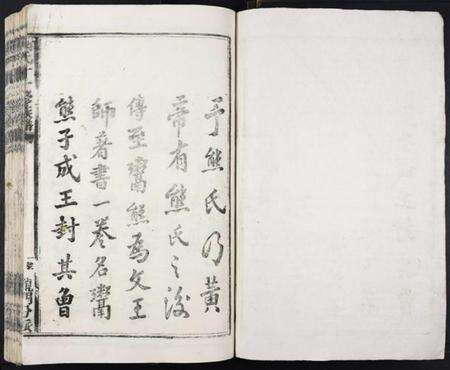 予熊氏乃黃
帝有熊氏之後
傳至鬻熊為文王
師著書一卷名鬻
熊子成王封其曾